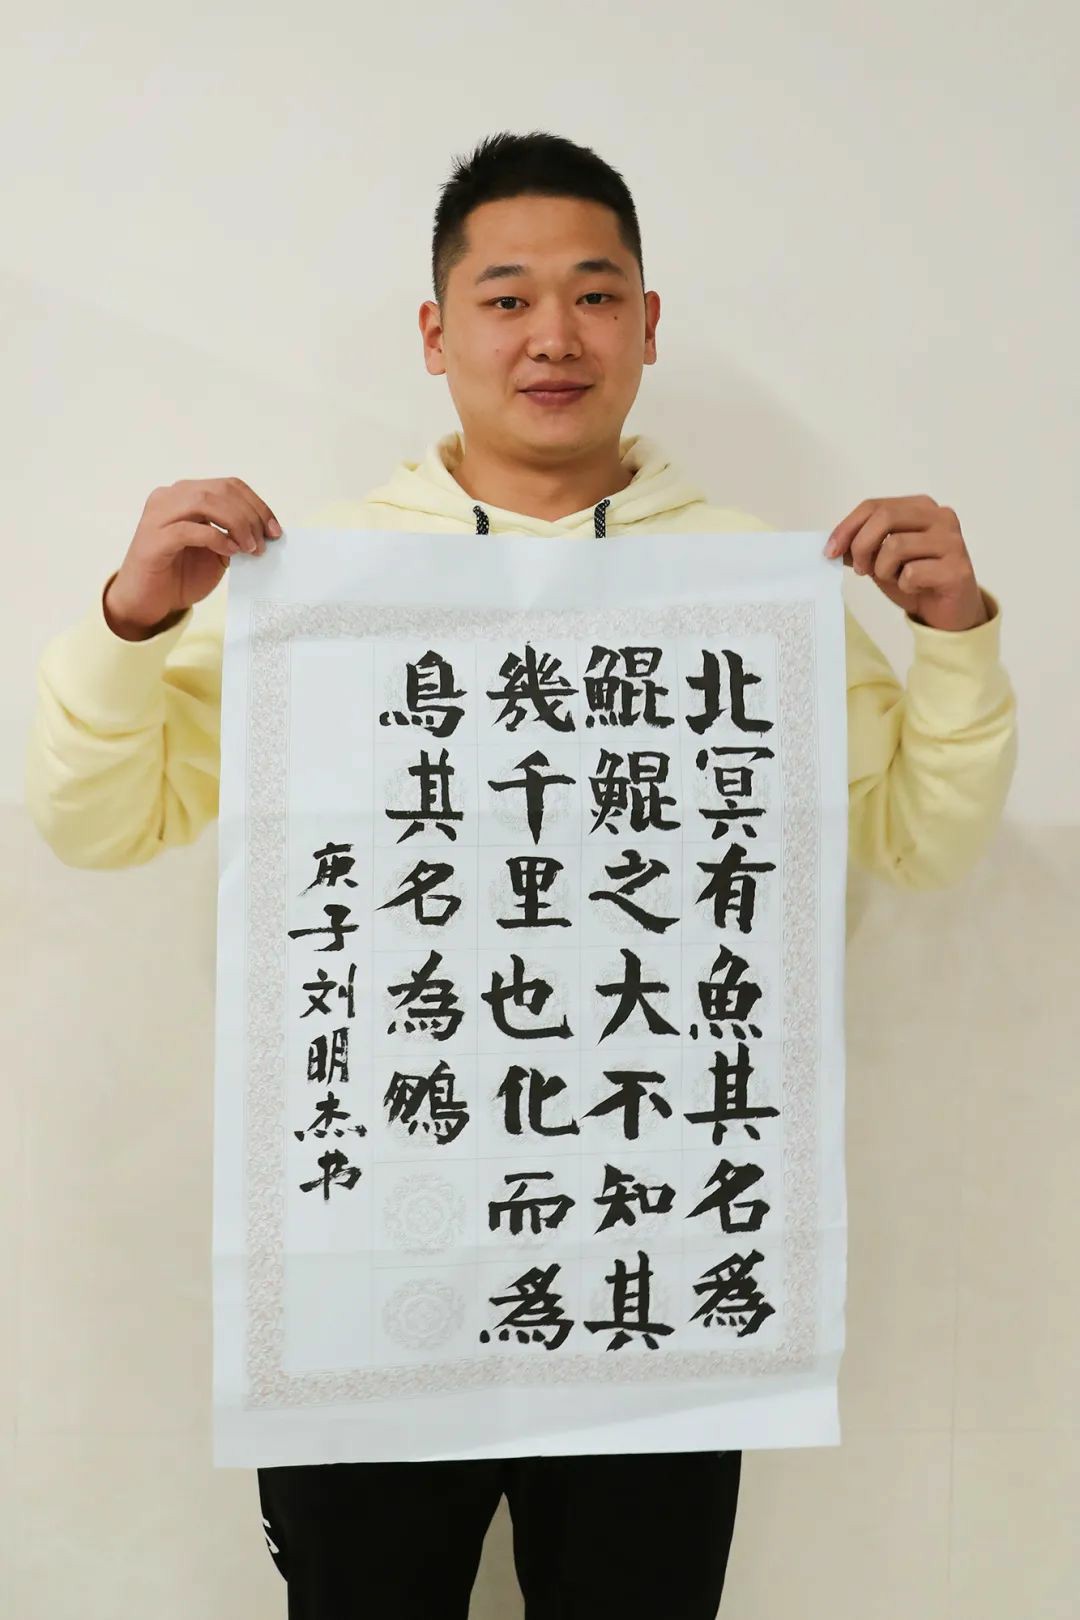 北冥有魚其名為
鯤鯤之大不知其
幾千里也化而為
鳥其名為鵬
庚子刘明杰书